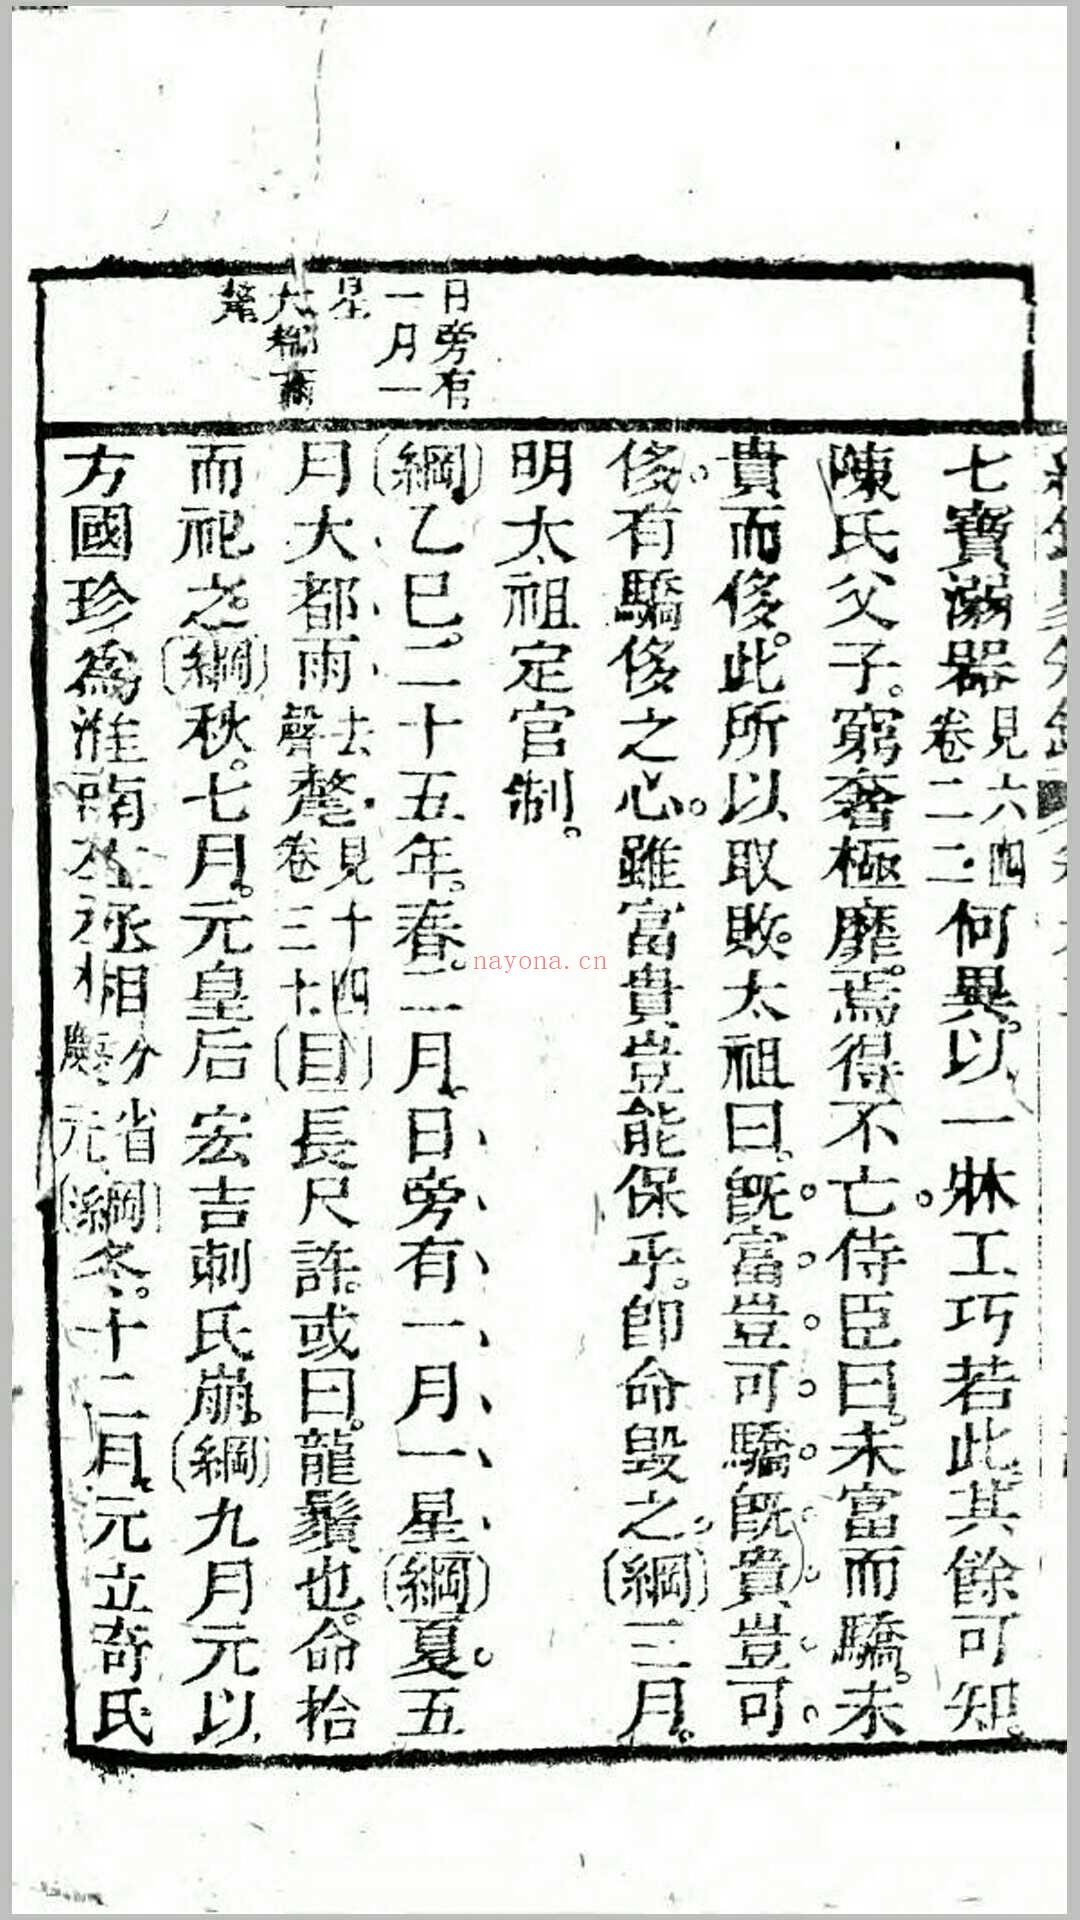 日旁有
一月一
星
大都雨
氂
七寶溺器見六四卷二二何異以一牀工巧若此其餘可知。
陳氏父子。窮奢極靡。焉得不亡。侍臣曰。未富而驕。未
貴而侈。此所以取敗。太祖曰。旣富豈可驕。旣貴豈可
侈。有驕侈之心。雖富貴豈能保乎。卽命毀之。(綱)三月。
明太祖定官制。
(綱)乙巳。二十五年。春。二月。日旁有一月一星(綱)夏。五
月大都雨去聲氂見十四卷三十(目)長尺許。或曰。龍鬚也。命拾
而祀之。(綱)秋。七月。元皇后宏吉剌氏崩。(綱)九月元以
方國珍爲淮南左丞相分省慶元(綱)冬。十二月。元立奇氏
nayona.cn